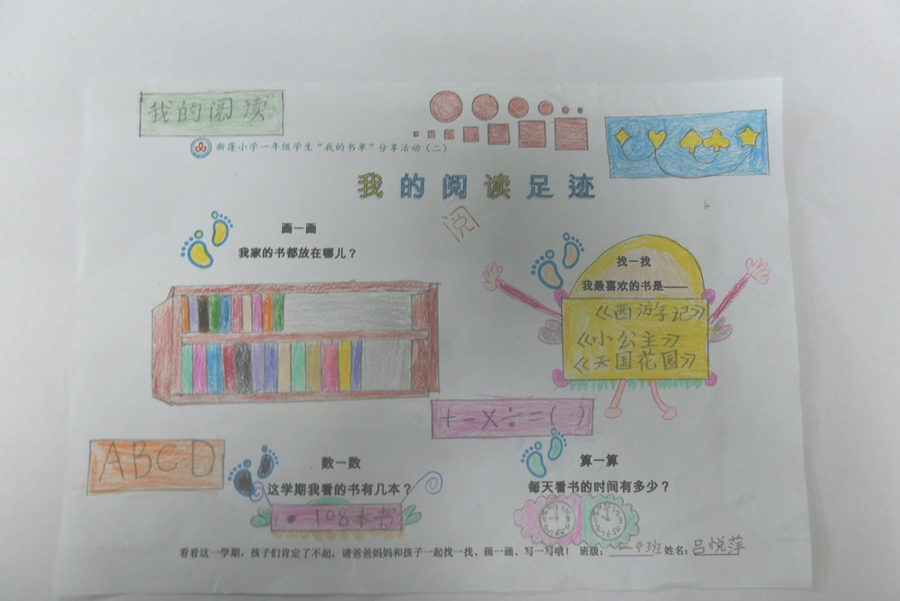 我的阅读
新蓬小学一年级学生“我的书单”分享活动（二）
我的阅读足迹
阅
画一画
我家的书都放在哪儿？
找一找
我最喜欢的书是——
《西游记》
《小公主》
《天国花园》
+-×÷=()
ABCD
数一数
这学期我看的书有几本？
108本书
算一算
每天看书的时间有多少？
看看这一学期，孩子们肯定了不起，请爸爸妈妈和孩子一起找一找、画一画、写一写哦！ 班级： 班 姓名：吕悦萍